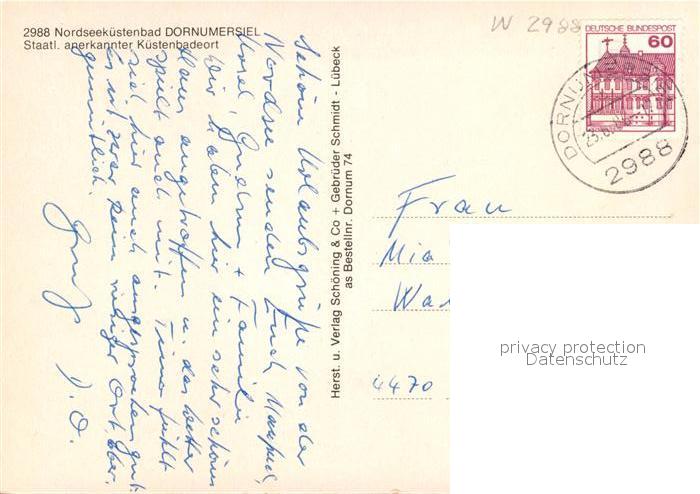 2988 Nordseeküstenbad DORNUMERSIEL
Staatl. anerkannter Küstenbadeort
W 2988
DEUTSCHE BUNDESPOST
60
2988
Schöne Urlaubsgrüße von der
Nordsee senden Euch Manfred,
Gudrun + Familie
Wir haben hier ein sehr schönes
Haus angetroffen u. das Wetter
spielt auch mit. Timo fühlt
sich hier auch ausgesprochen gut.
Es ist zwar kein ruhiger Ort, aber
gemütlich.
Gruß
D. O.
Herst. u. Verlag Schöning & Co + Gebrüder Schmidt - Lübeck
as Bestellnr. Dornum 74
Frau
Mia
4470
privacy protection
Datenschutz